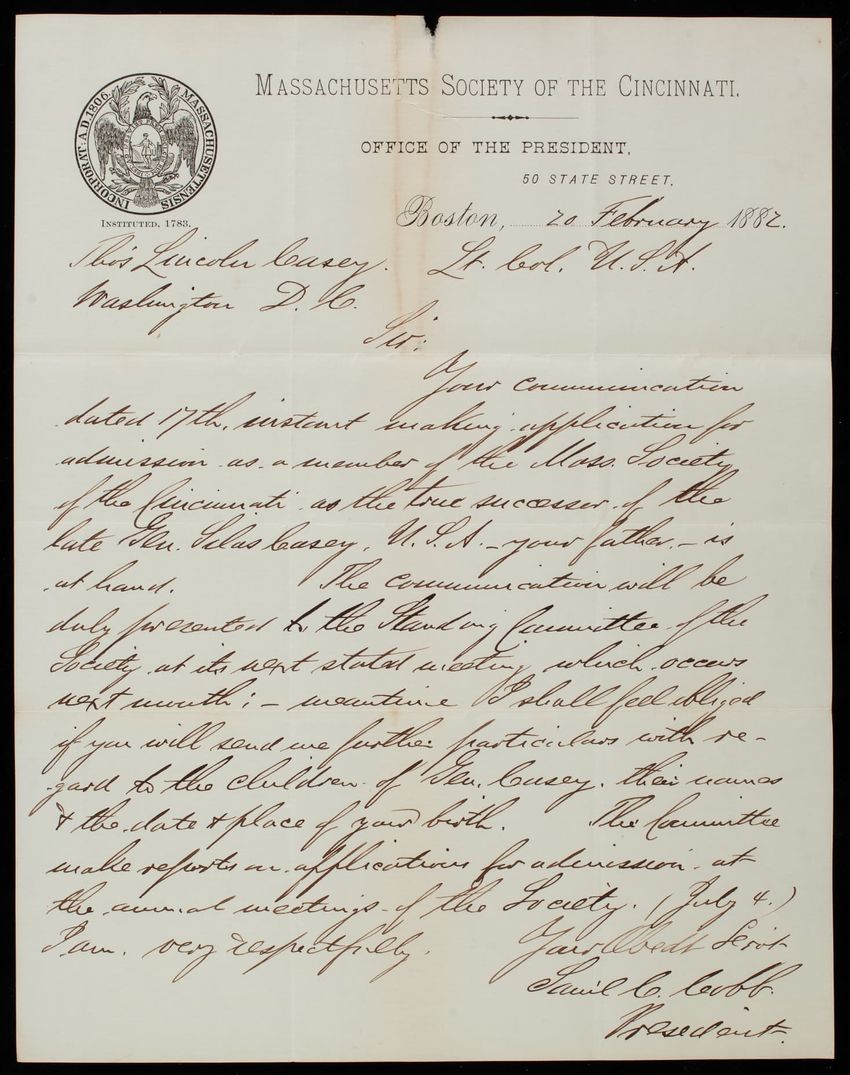 MASSACHUSETTS SOCIETY OF THE CINCINNATI.
OFFICE OF THE PRESIDENT,
50 STATE STREET,
INCORPORAT. A.D. 1806. MASSACHUSETTENSIS
INSTITUTED, 1783.
Boston, 20 February 1882.
Thos Lincoln Casey. Lt. Col. U.S.A.
Washington D.C.
Sir:
Your communication
dated 17th, instant making application for
admission as a member of the Mass. Society
of the Cincinnati as the true successor of the
late Gen. Silas Casey, U.S.A. - your father - is
at hand. The communication will be
duly presented to the Standing Committee of the
Society at its next stated meeting which occurs
next month; - meantime I shall feel obliged
if you will send me further particulars with re-
gard to the children of Gen. Casey, their names
& the date & place of your birth. The Committee
make reports on applications for admission at
the annual meetings of the Society. (July 4.)
I am, very respectfully,
Your Obedt Servt
Saml C. Cobb.
President.